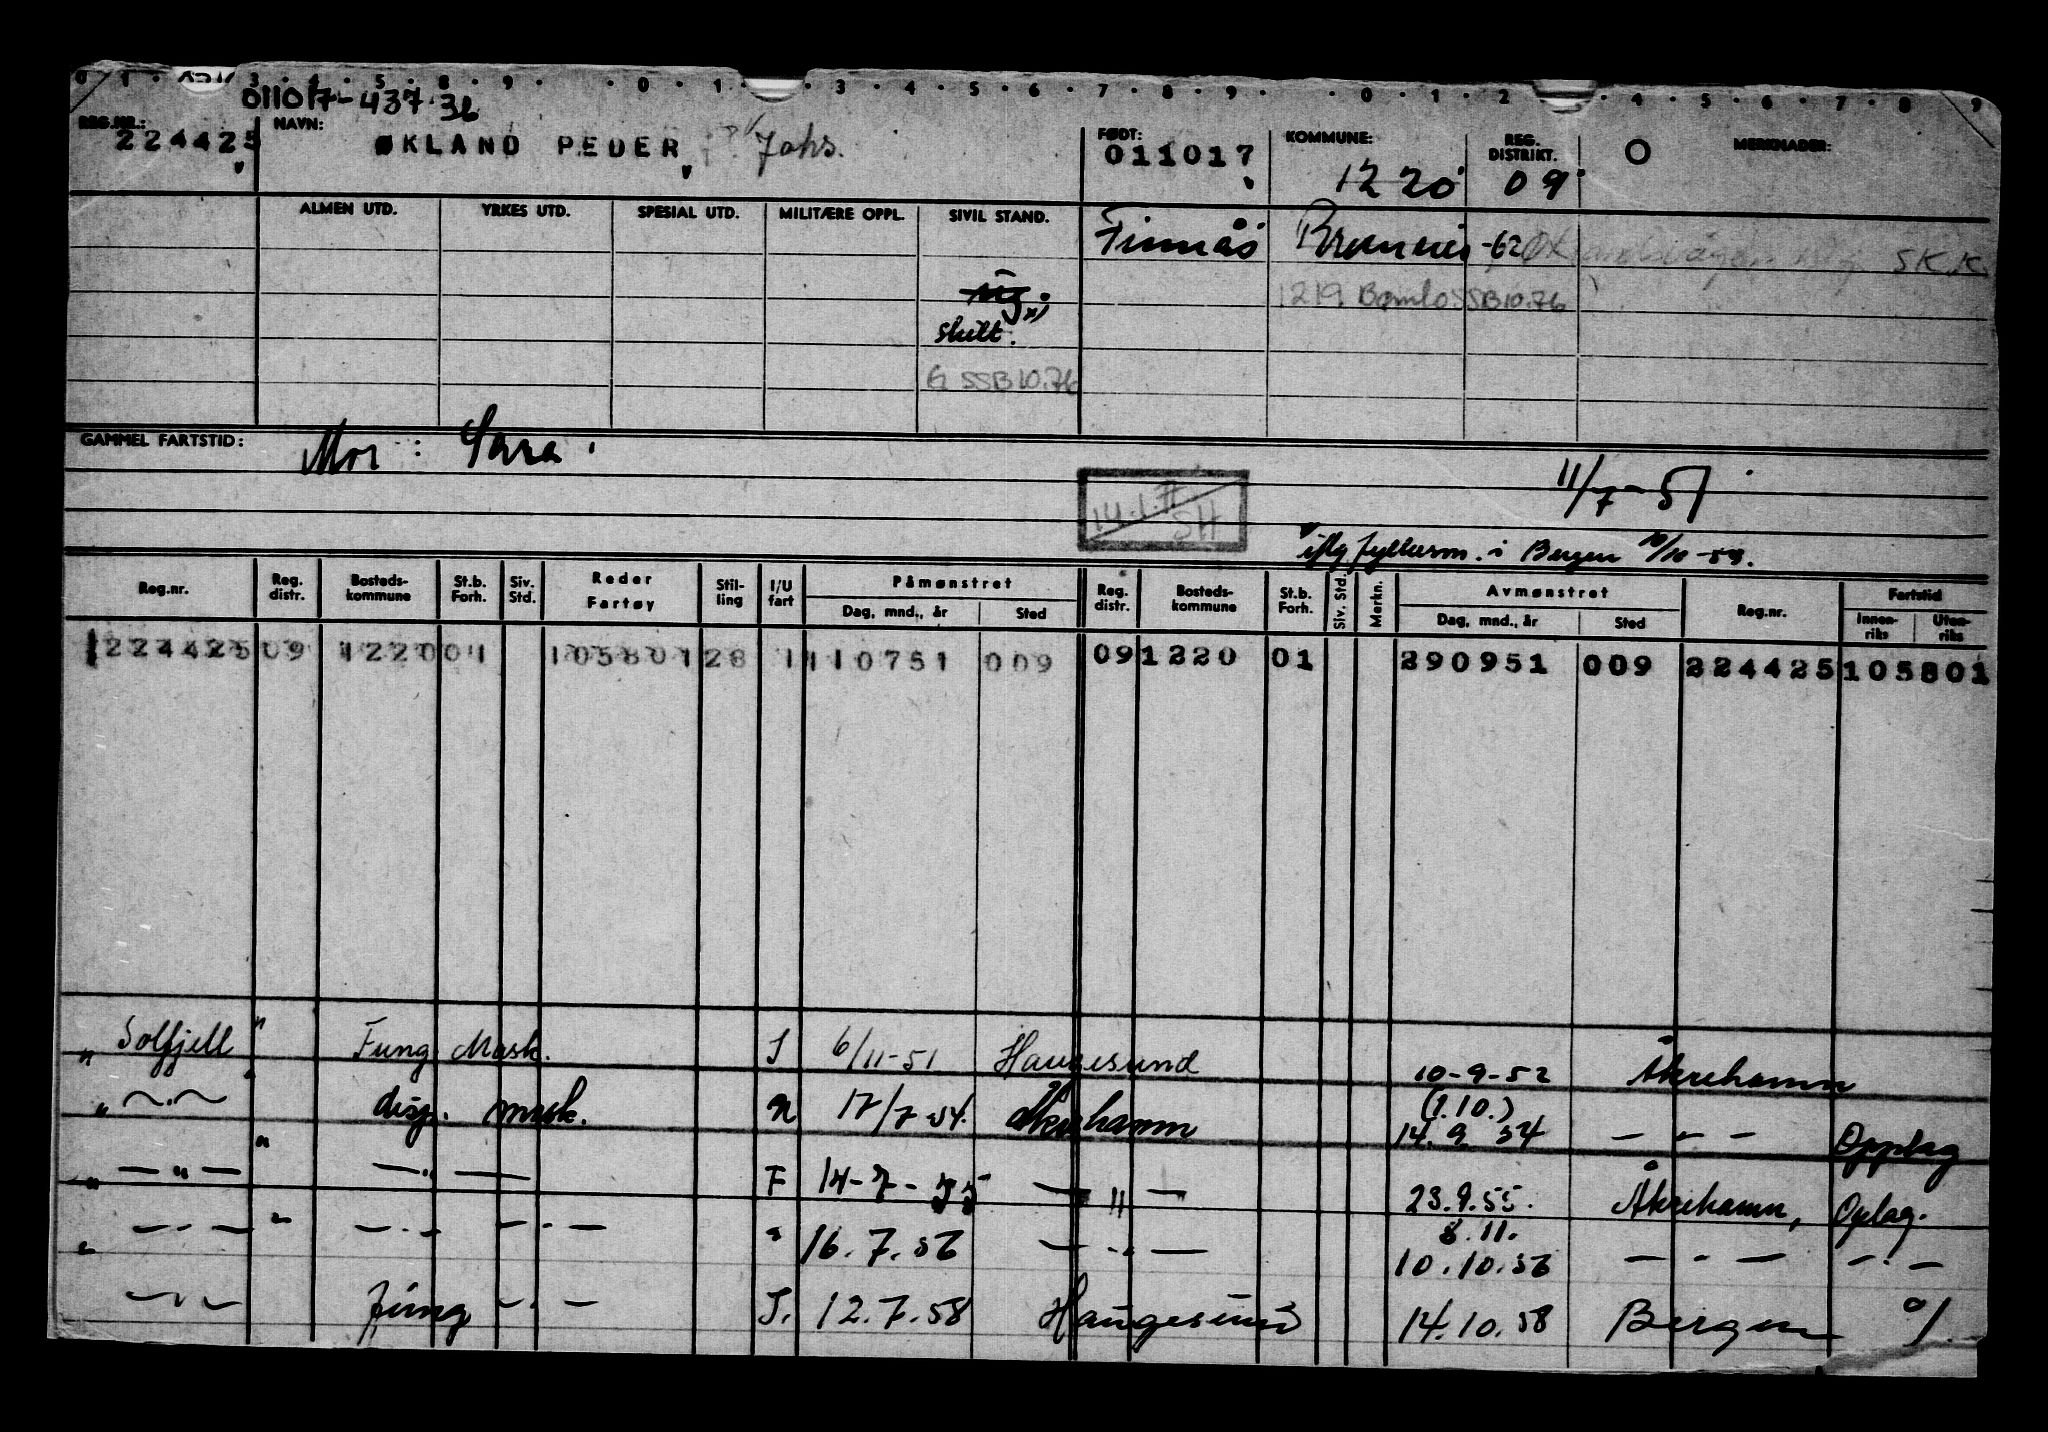 011017-437 36
REG.NR.: 224425 NAVN: ØKLAND PEDER Johs. FØDT: 011017 KOMMUNE: 1220 REG. DISTRIKT. 09 O MERKNADER:
ALMEN UTD. YRKES UTD. SPESIAL UTD. MILITÆRE OPPL. SIVIL STAND. Finnås Bremnes -62 S.K.K.
ug. x) 1219 Bømlo SSB 10.76
skilt.
G SSB 10.76
GAMMEL FARTSTID: Mor: Sara. 11/7-51
14.1.77 SH
iflg fylkesm. i Bergen
Reg.nr. Reg. distr. Bosteds-kommune St.b. Forh. Siv. Std. Reder Fartøy Stil-ling I/U fart Påmønstret Dag, mnd., år Sted Reg. distr. Bosteds-kommune St.b. Forh. Siv. Std. Merkn. Avmønstret Dag, mnd., år Sted Reg.nr. Fartstid Innen-riks Uten-riks
1224425 09 1220 01 105801 28 1 110751 009 09 1220 01 290951 009 224425 105801
" Solfjell " Fung Mask. S 6/11-51 Haugesund 10-9-52 Åkrehamn
" — " — " disp. mask. n 17/7-54. Åkrehamn (1.10.) 14.9.54 — " — Opplag
" — " — " — " — F 14-7-55 — " — 23.9.55. Åkrehamn, Oplag.
" — " — " — " — — " — " 16.7.56 — " — 8.11. 10.10.56 — " — — " —
— " — fung — " — S. 12.7.58 Haugesund 14.10.58 Bergen %